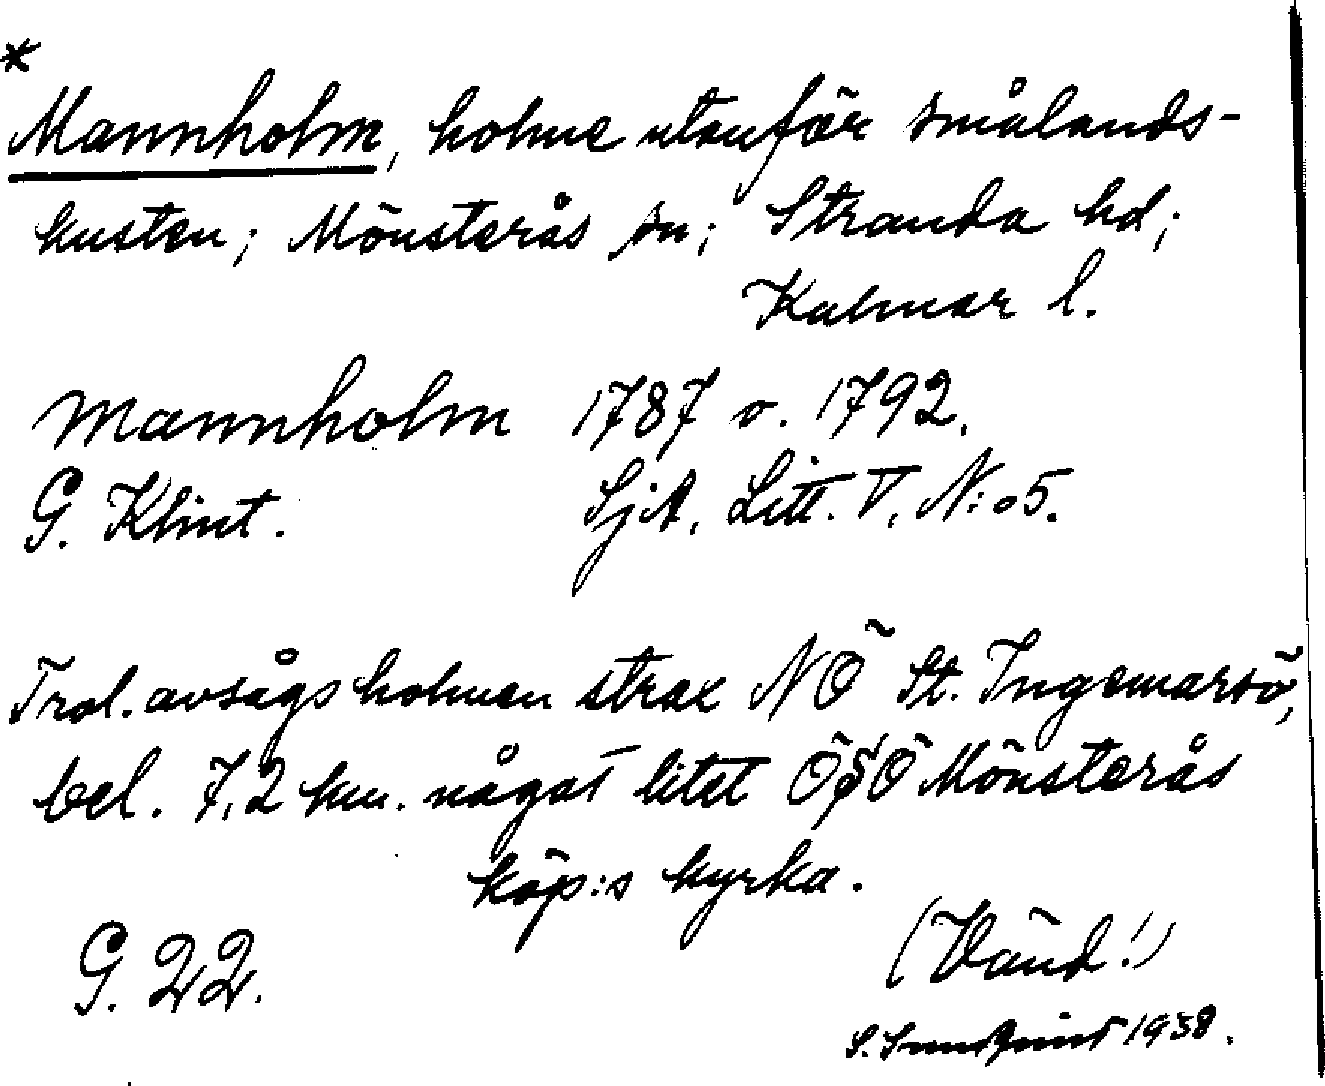 *
Mannholm, holme utanför smålands-
kusten; Mönsterås sn; Stranda hd;
Kalmar l.
Mannholm 1787 o. 1792.
G. Klint. SjA, Litt. V, N:o 5.
Trol. avsågs holmen strax NÖ St. Ingemarsö,
bel. 7,2 km. något litet ÖSÖ Mönsterås
köp:s kyrka.
G. 22.
(Vänd!)
S. Sundquist 1938.